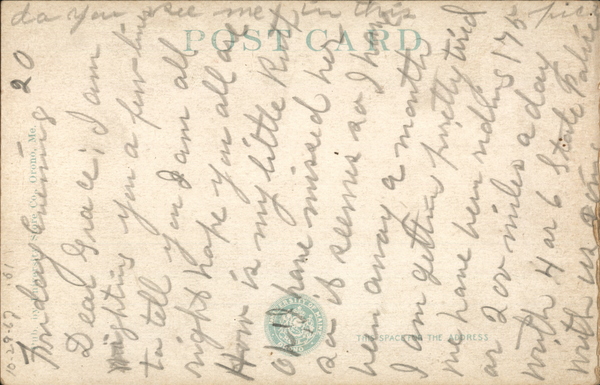 do you see me in this pic
POST CARD
Sunday Evening 20
Dear Grace; I am
writing you a few lines
to tell you I am all
right hope you all are
How is my little Ruth
Oh I have missed her
so it seems as I have
been away a month
I am gettin pretty tired
we have been riding 175
or 200 miles a day
with 4 or 6 State Police
with us
THIS SPACE FOR THE ADDRESS
Store Co., Orono, Me.
10-29-67